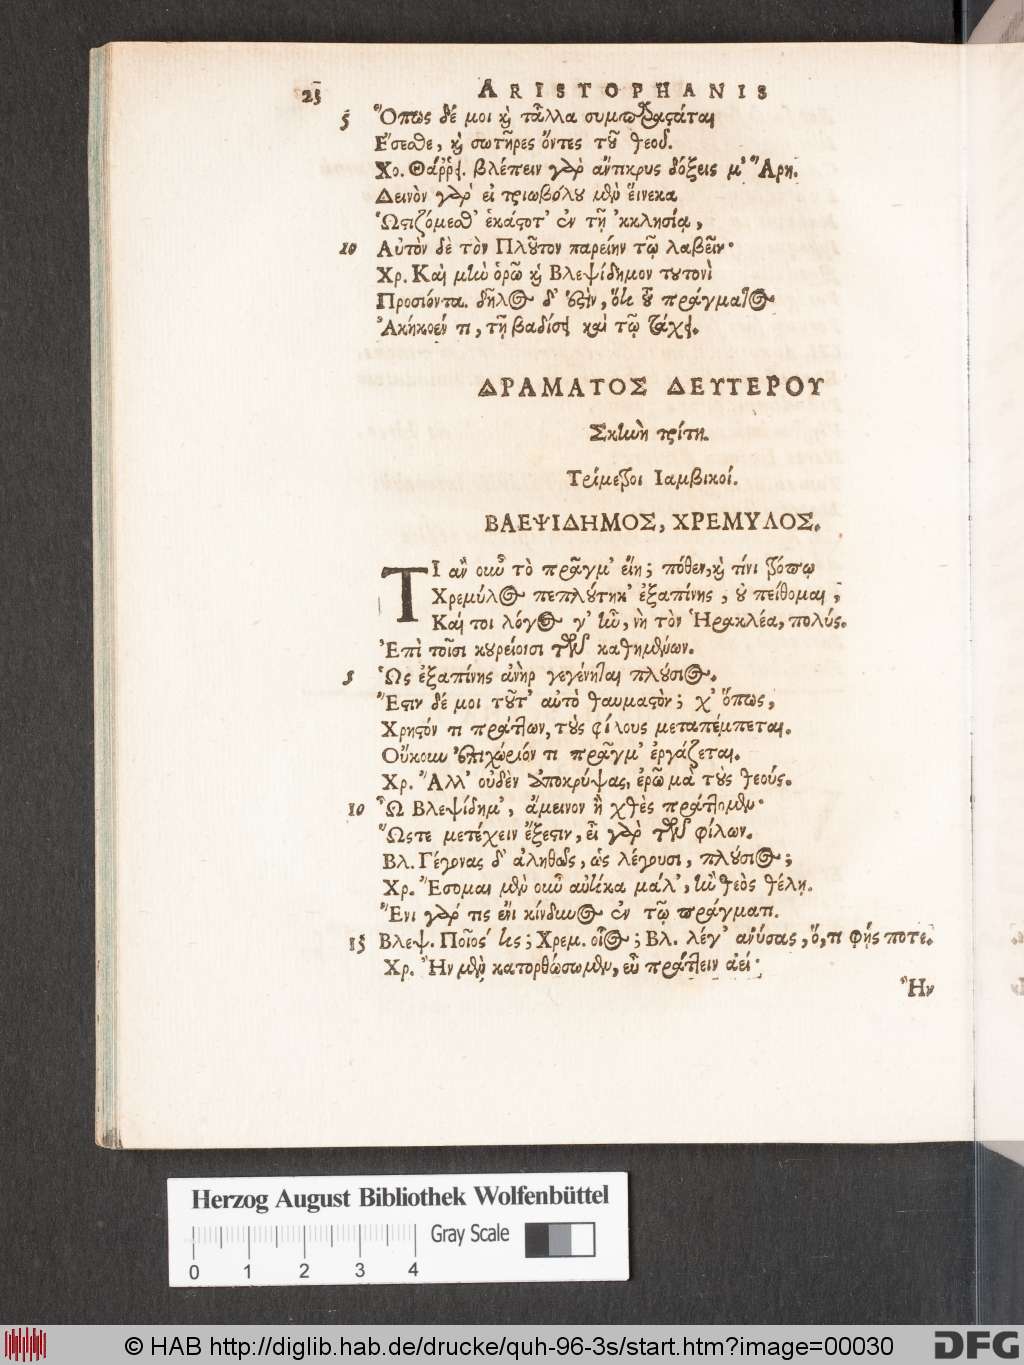 25 ARISTOPHANIS
5 Ὅπως δέ μοι καὶ τἆλλα συμπαραστάται
Ἔσεσθε, καὶ σωτῆρες ὄντες τοῦ θεοῦ.
Χο. Θάῤῥει. βλέπειν γὰρ ἄντικρυς δόξεις μ' Ἄρη.
Δεινὸν γὰρ εἰ τριωβόλου μὲν εἵνεκα
Ὠστιζόμεσθ' ἑκάστοτ' ἐν τῇ 'κκλησίᾳ,
10 Αὐτὸν δὲ τὸν Πλοῦτον παρείην τῷ λαβεῖν·
Χρ. Καὶ μὴν ὁρῶ καὶ Βλεψίδημον τουτονὶ
Προσιόντα. δῆλος δ' ἐστὶν, ὅτι τοῦ πράγματος
Ἀκήκοέν τι, τῇ βαδίσει καὶ τῷ τάχει.
ΔΡΑΜΑΤΟΣ ΔΕΥΤΕΡΟΥ
Σκηνὴ τρίτη.
Τρίμετροι Ιαμβικοί.
ΒΛΕΨΙΔΗΜΟΣ, ΧΡΕΜΥΛΟΣ.
ΤΙ ἂν οὖν τὸ πρᾶγμ' εἴη; πόθεν, καὶ τίνι τρόπῳ
Χρεμύλος πεπλούτηκ' ἐξαπίνης, οὐ πείθομαι,
Καί τοι λόγος γ' ἦν, νὴ τὸν Ἡρακλέα, πολύς.
Ἐπὶ τοῖσι κουρείοισι τῶν καθημένων.
5 Ὡς ἐξαπίνης ἀνὴρ γεγένηται πλούσιος.
Ἔστιν δέ μοι τοῦτ' αὐτὸ θαυμαστὸν; χ' ὅπως,
Χρηστόν τι πράττων, τοὺς φίλους μεταπέμπεται.
Οὔκουν ἐπιχώριόν τι πρᾶγμ' ἐργάζεται.
Χρ. Ἀλλ' οὐδὲν ἀποκρύψας, ἐρῶ μὰ τοὺς θεούς.
10 Ὦ Βλεψίδημ', ἄμεινον ἢ χθὲς πράττομεν·
Ὥστε μετέχειν ἔξεστιν, εἶ γὰρ τῶν φίλων.
Βλ. Γέγονας δ' ἀληθῶς, ὡς λέγουσι, πλούσιος;
Χρ. Ἔσομαι μὲν οὖν αὐτίκα μάλ', ἢν θεὸς θέλῃ.
Ἔνι γάρ τις ἔνι κίνδυνος ἐν τῷ πράγματι.
15 Βλεψ. Ποῖός τις; Χρεμ. οἷος; Βλ. λέγ' ἀνύσας, ὅ, τι φῄς ποτε.
Χρ. Ἢν μὲν κατορθώσωμεν, εὖ πράττειν ἀεί·
Ἢν
Herzog August Bibliothek Wolfenbüttel
Gray Scale
0 1 2 3 4
© HAB http://diglib.hab.de/drucke/quh-96-3s/start.htm?image=00030
DFG